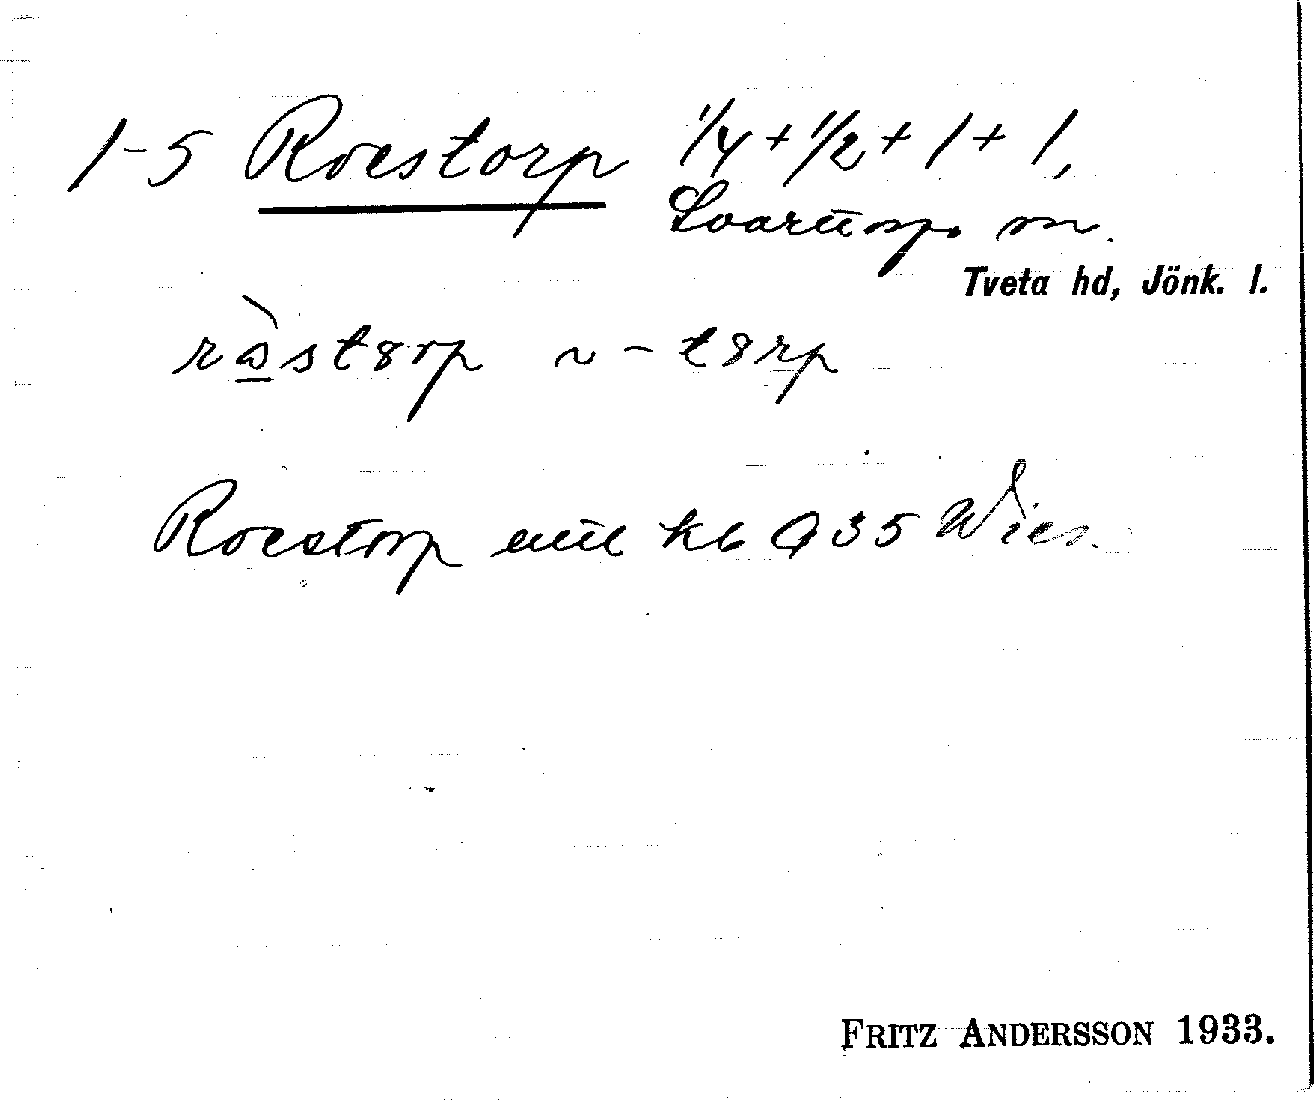 1-5 Roestorp 1/4 + 1/2 + 1 + 1,
Svarttorp sn.
Tveta hd, Jönk. l.
~ -
Roestorp enl kb 935 Wies.
FRITZ ANDERSSON 1933.